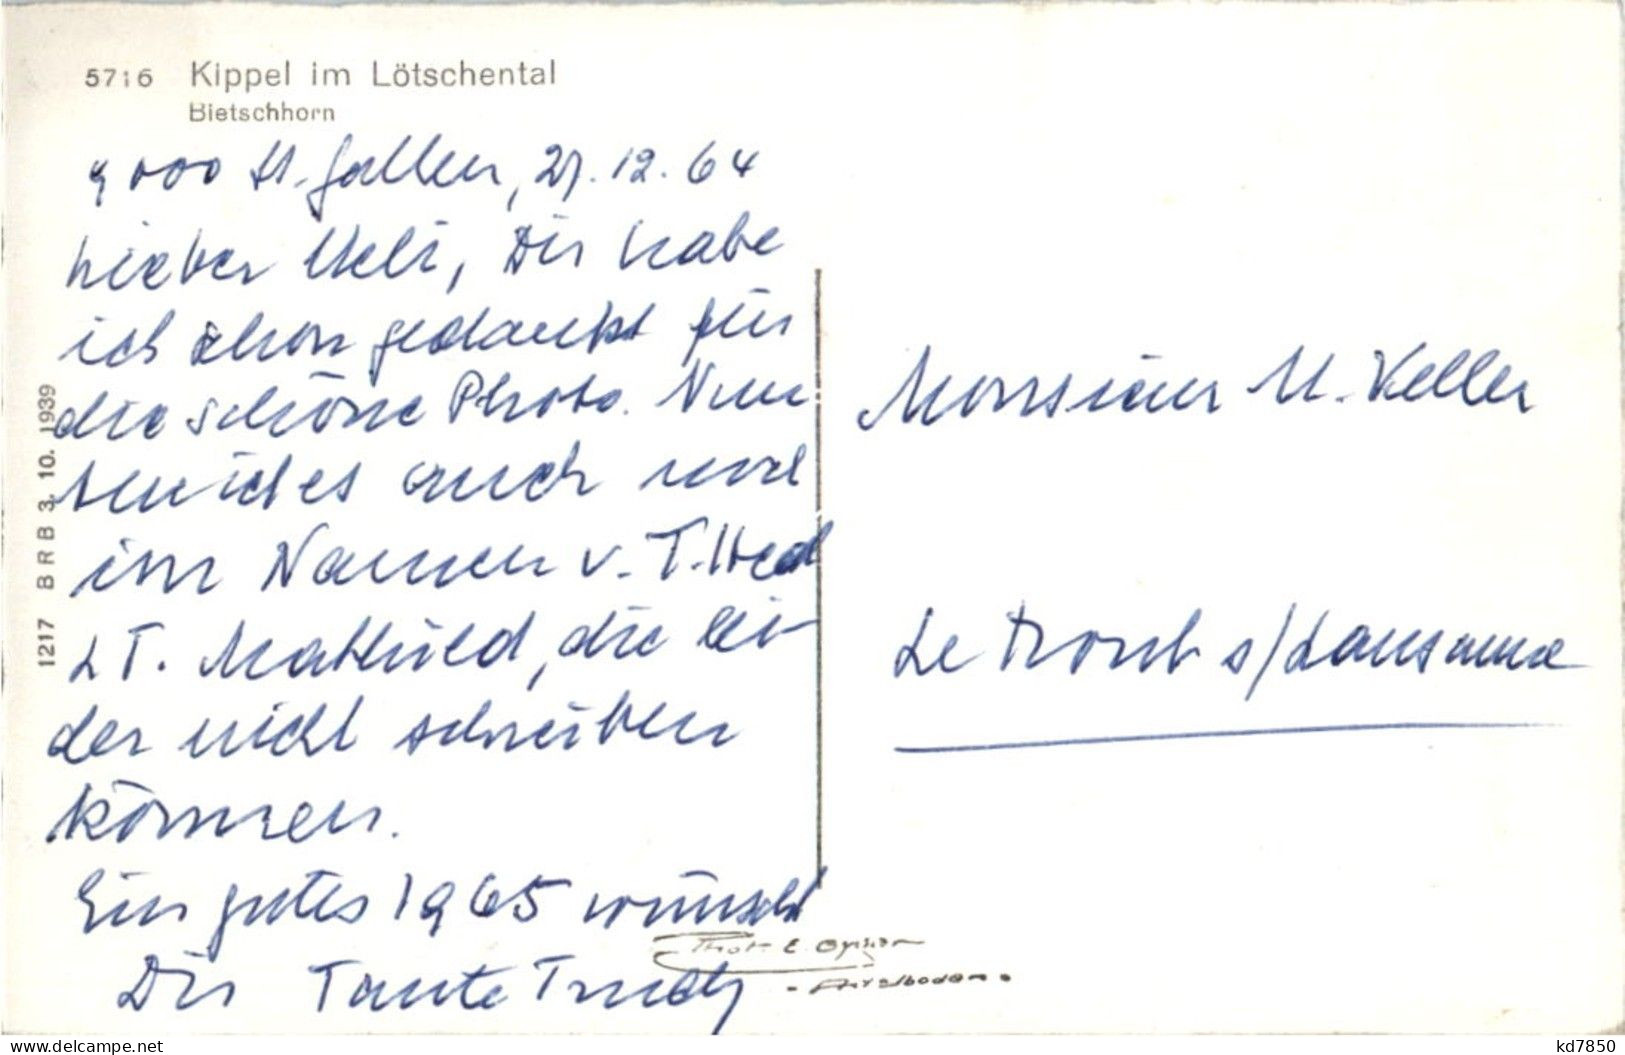 5716 Kippel im Lötschental
Bietschhorn
9000 St. Gallen, 27.12.64
Lieber Ueli, Dir habe
ich schon gedankt für
die schöne Photo. Nun
tu ich es auch noch
im Namen v. T. Hed
& T. Mathild, die lei-
der nicht schreiben
können.
Ein gutes 1965 wünscht
Dir Tante Trudy
1217 BRB 3. 10. 1939
Monsieur U. Keller
Le Mont s/Lausanne
Phot. E. Gyger
- Adelboden -
delcampe.net
kd7850